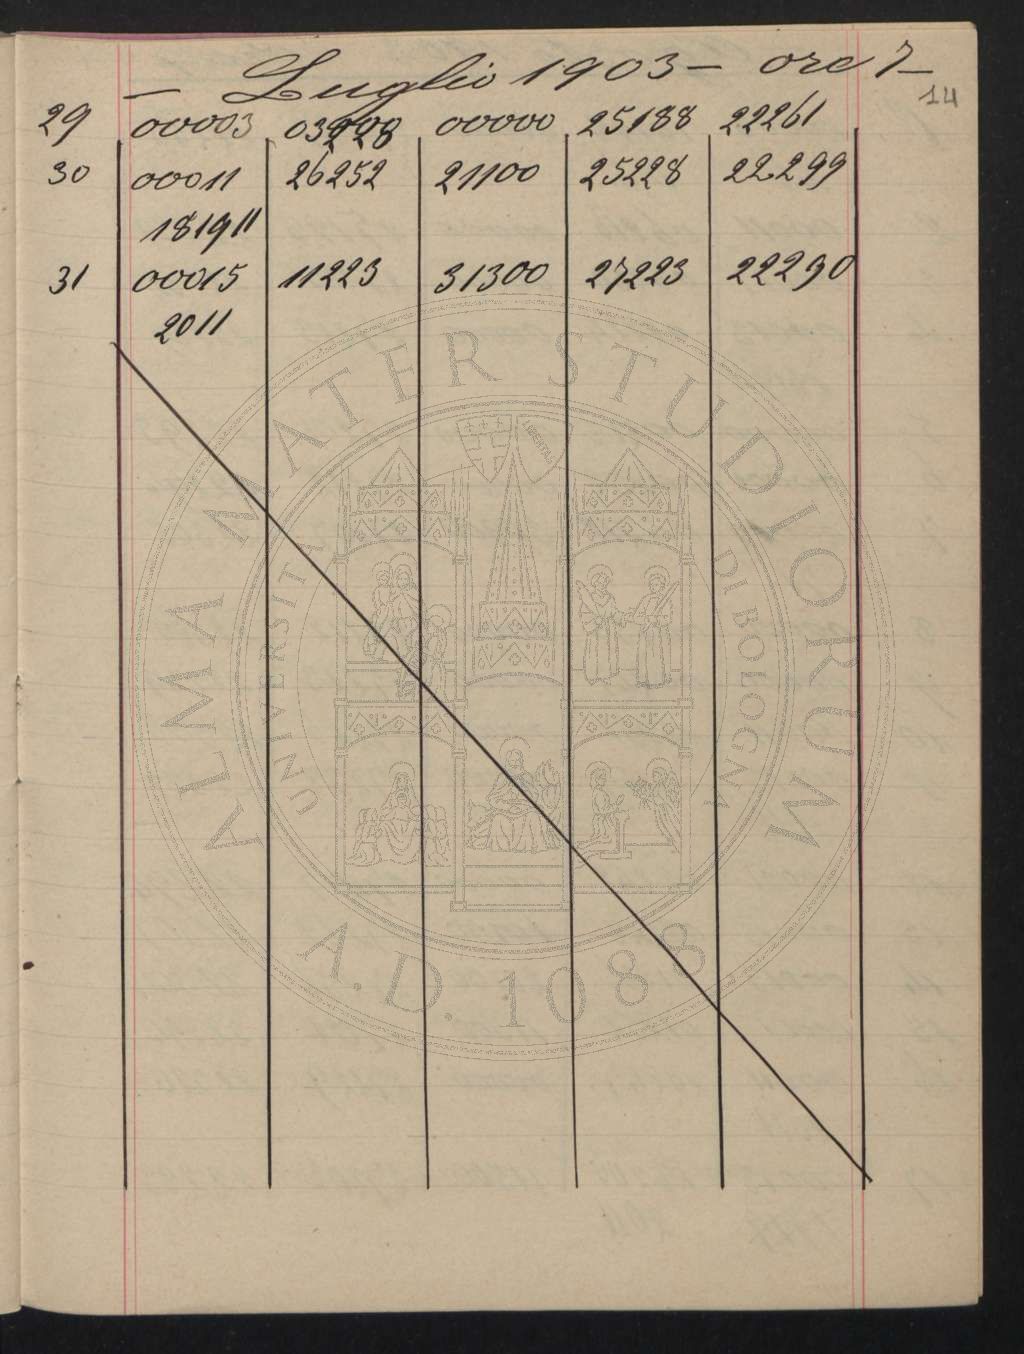 — Luglio 1903 — ore 7 —
14
29 00003 03228 00000 25188 22261
30 00011 26252 21100 25228 22299
181911
31 00015 11223 31300 27223 22290
2011
ALMA MATER STUDIORUM
UNIVERSITÀ DI BOLOGNA
LIBERTAS
A.D. 1088